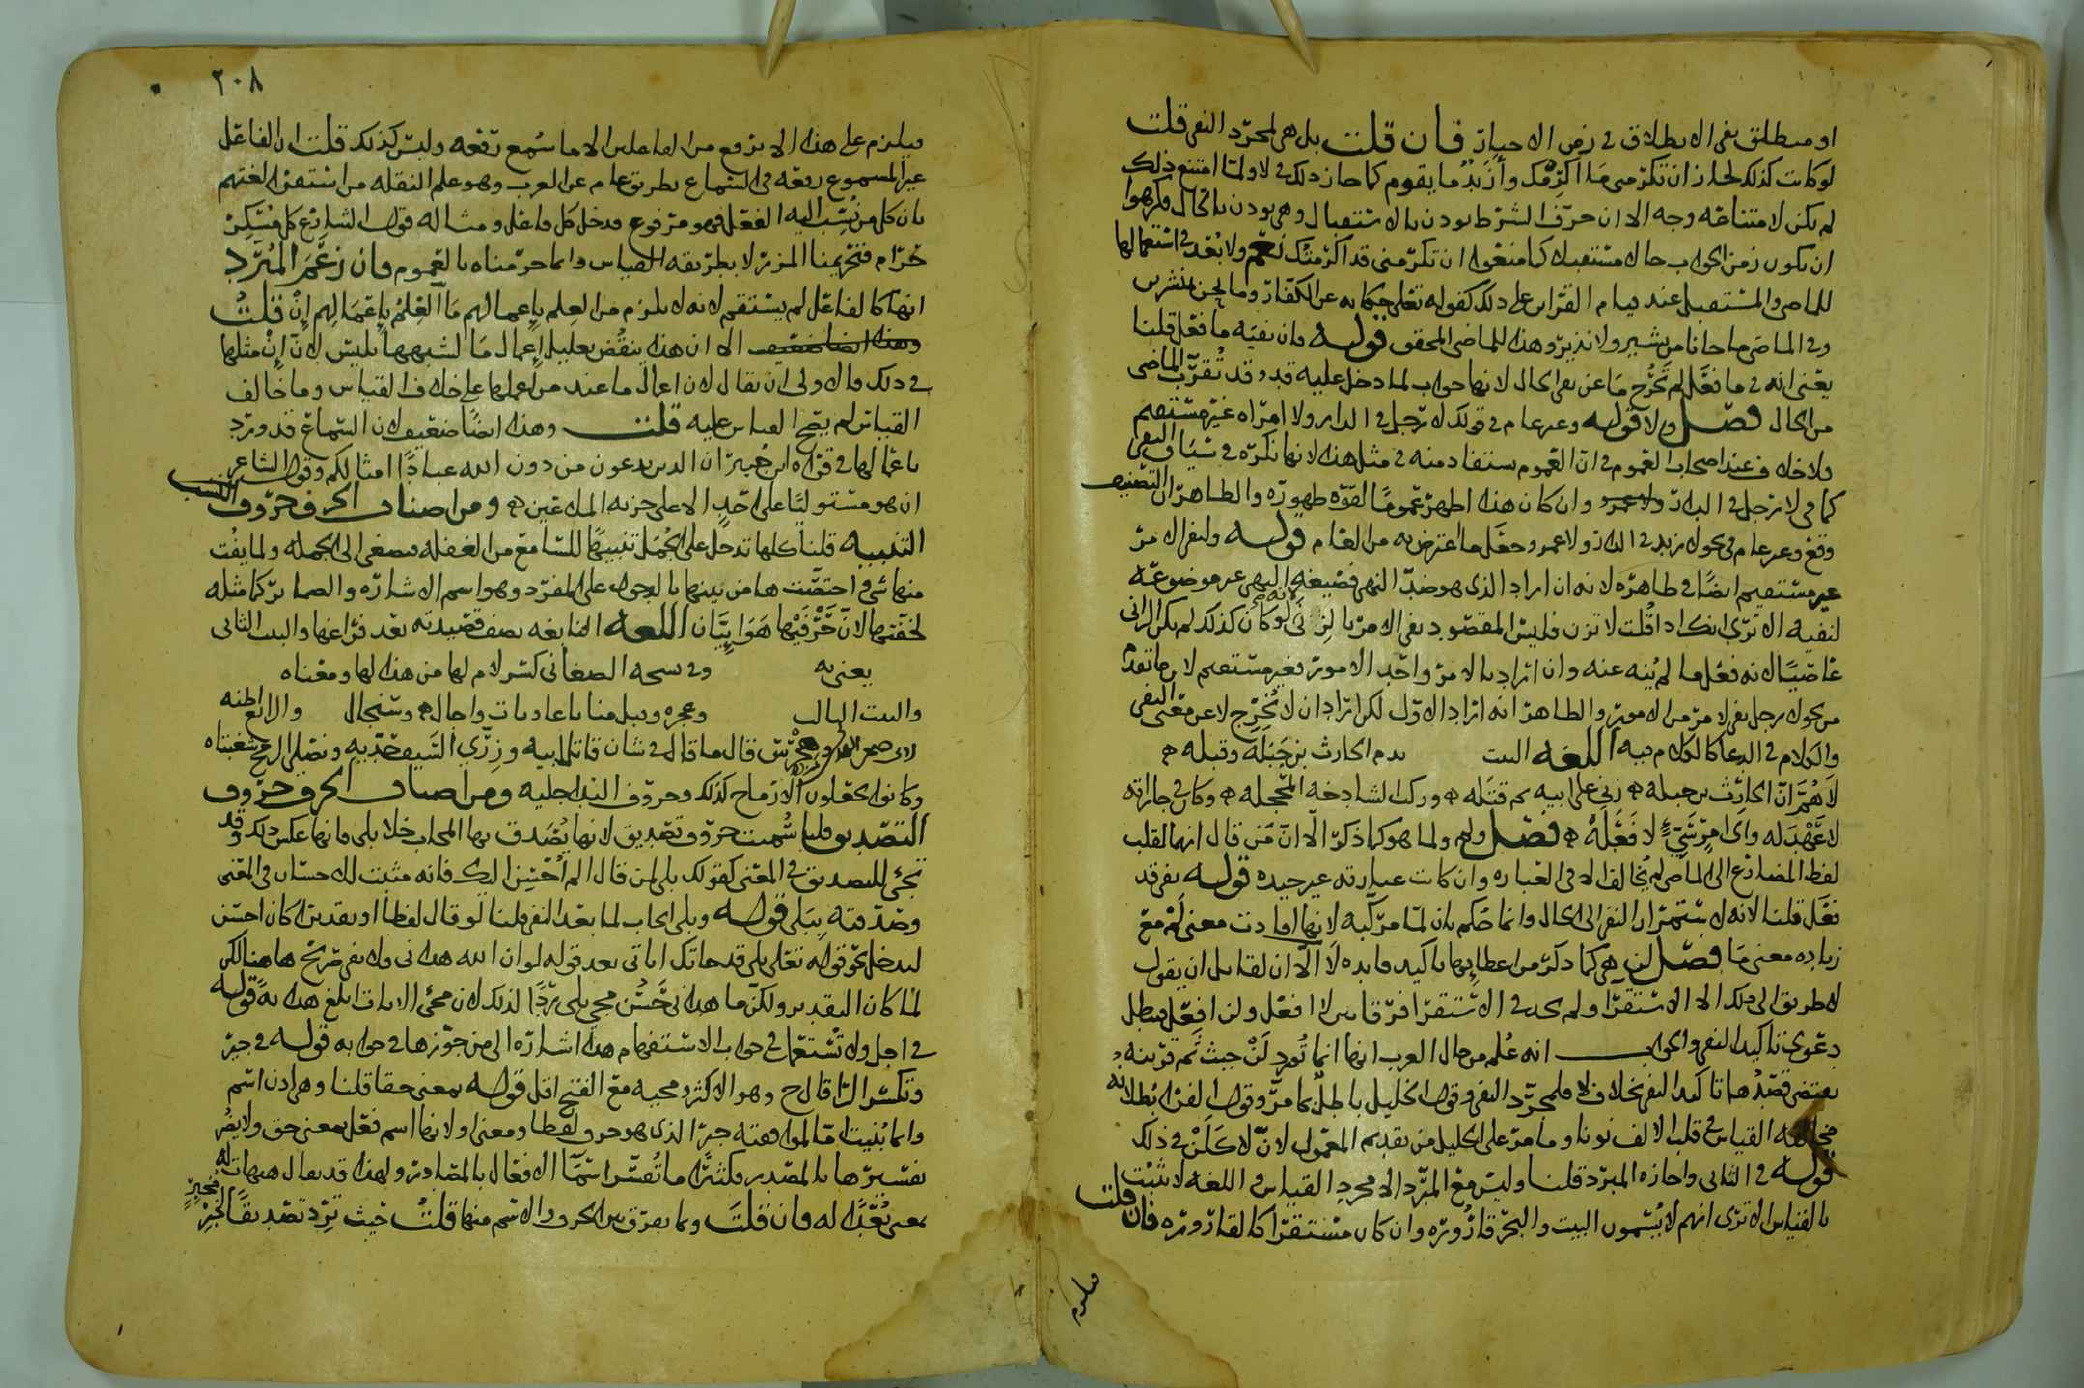 او مطلق نفى الانطلاق فى زمن الاخبار فان قلت بل هى لمجرد النفى قلت
لو كانت كذلك لجاز ان تكرمنى ما اكرمك وازيد ما يقوم كما جاز ذلك فى لا ولما امتنع ذلك
لم يكن لامتناعه وجه الا ان حرف الشرط يوذن بالاستقبال وهى يوذن بالحال فكرهوا
ان يكون زمن الجواب حالا مستقبلا كما منعوا ان تكرمنى قد اكرمتك نعم ولا بعد فى استعمالها
للماضى والمستقبل عند قيام القراين على ذلك كقوله تعلى حكاية عن الكفار وما نحن بمنشرين
وفى الماضى ما جانا من بشير ولا نذير وهذا للماضى المحقق قوله فان نفيه ما فعل قلنا
يعنى انه فى ما فعل لم تخرج ما عن نفى الحال لانها جواب لما دخل عليه قد وقد تقرب الماضى
من الحال فصل ولا قوله وغير عام فى قولك لا رجل فى الدار ولا امراة غير مستقيم
ولا خلاف عند اصحاب العموم فى ان العموم مستفاد منه فى مثل هذا لانها نكرة فى سياق النفى
كما فى لا رجل فى الدار وان كان هذا اظهر عموما لقوة ظهوره والظاهر ان التصنيف
وقع وغير عام فى نحو لا زيد فى الدار ولا عمرو وحقل ما اعترض به من الغام قوله ولنفى الامر
غير مستقيم ايضا فى ظاهره لانه ان اراد الذى هو ضد النهى فصيغة النهى غير موضوعة
لنفيه الا ترى انك اذا قلت لا تزن فليس المقصود نفى الامر بالزنى لانه لو كان كذلك لم يكن الزانى
عاصيا لانه فعل ما لم ينه عنه وان اراد بالامر واحد الامور فغير مستقيم لان ما تقدم
من نحو لا رجل نفى لامر من الامور والظاهر انه اراد الاول لكن اراد ان لا تخرج لا عن معنى النفى
والكلام فى الدعا كالكلام فيه اللغه البيت يذم الحارث بن جبلة وقبله
لاهم ان الحارث بن جبله زنى على ابيه ثم قتله وركب الشادخة المحجله وكان فى جاراته
لا عهد له واى امر سيئ لا فعله فصل ولم ولما هو كما ذكر الا ان من قال انهما لقلب
لفظ المضارع الى الماضى لم يخالف الا فى العبارة وان كانت عبارته غير جيدة قوله نفى قد
فعل قلنا لانه لاستمرار النفى الى الحال وانما حكم بان لما مركبة لانها افادت معنى لم مع
زيادة معنى ما فصل لن هى كما ذكر من اعطايها تاكيد فايدة لا الا ان لقايل ان يقول
لا طريق الى ذلك الا الاستقرا ولم نجد فى الاستقرا فرقا بين لا افعل ولن افعل فبطل
دعوى تاكيد النفى والجواب انه علم من حال العرب انها انما تورد لن حيث ثم قرينة
يقتضى قصدها تاكيد النفى بخلاف لا فلمجرد النفى وقول الخليل باطل بما مر وقول الفرا بطلانه
مخالفه القياس فى قلب الالف نونا وما مر على الخليل من تقديم المعمول لان لا كلن فى ذلك
قوله فى الثانى واجازه المبرد قلنا وليس مع المبرد الا مجرد القياس واللغة لا تثبت
بالقياس الا ترى انهم لا يسمون البيت والبحر قارورة وان كان مستقرا كالقارورة فان قلت
٢٠٨
فيلزم على هذا الا يرفع من الفاعلين الا ما سمع رفعه وليس كذلك قلت ان الفاعل
غير المسموع رفعه فى السماع بطريق عام عن العرب وهو علم النقلة من استقرا لغتهم
بان كل من نسب اليه الفعل فهو مرفوع فدخل كل فاعل ومثاله قول الشارع كل مسكر
حرام فتحريمنا المزر لا بطريقة القياس وانما حرمناه بالعموم فان زعم المبرد
انها كالفاعل لم يستقم لانه لا يلزم من العلم باعمالهم ما العلم باعمالهم ان قلت
الا ان هذا ينقض بعليل اعمال ما لشبهها بليس لان ان مثلها
فى ذلك فالاولى ان يقال لان اعمال ما عند من اعملها على خلاف القياس وما خالف
القياس لم يصح القياس عليه قلت وهذا ايضا ضعيف لان السماع قد ورد
باعمالها فى قراة ابن جبير ان الذين يدعون من دون الله عبادا امثالكم وقول الشاعر
ان هو مستوليا على احد الا على حزبه الملاعين ومن اصناف الحرف حروف
التنبيه قلنا كلها تدخل على الجمل تنبيها للسامع من الغفلة فيصغى الى الجملة ولما يفت
منها شى اختصت ها من بينها بالدخول على المفرد وهو اسم الاشارة والضماير كما مثله
لخفتها لان حرفيها هوائيان اللغه النابغة يصف قصيدته بعد فراغها والبيت الثانى
يعنى به وفى نسخة الصغانى كسر لام لها من هذا لها ومعناه
والبيت الثالث وعجزه وقبل منايا غاديات واجال وسنجال
قال ما قال فى شان قاتل ابيه وزرى السيف حديه ونصلى الرمح شعبتاه
وكانوا يجعلون الارماح كذلك وحروف الندا جلية ومن اصناف الحرف حروف
التصديق قلنا سميت حروف تصديق لانها يصدق بها المجاب خلا بلى فانها عكس ذلك وقد
تجئ للتصديق فى المعنى كقولك بلى لمن قال الم احسن اليك فانه مثبت للاحسان فى المعنى
وصدقته ببلى قوله وبلى ايجاب لما بعد النفى قلنا لو قال لفظا او تقديرا كان احسن
ليدخل نحو قوله تعلى بلى قد جاتك اياتى بعد قوله لو ان الله هدانى ولا نفى صريح هاهنا لكن
لما كان التقدير ولكن ما هدانى حسن مجى بلى ردا لذلك لان مجئ الايات ابلغ هداية قوله
فى اجل ولا تستعمل فى جواب الاستفهام هذا اشارة الى من جوزها فى جوابه قوله فى جير
وتكسر الرا قال ح وهو الاكثر ومجيه مع الفتح اقل قوله بمعنى حقا قلنا وهى اذن اسم
وانما بنيت لموافقته جير الذى هو حرف لفظا ومعنى او لانها اسم فعل بمعنى حق ولا يضر
تفسيرها بالمصدر فكثيرا ما تفسر اسما الافعال بالمصادر ولهذا قد يقال هيهات له
بمعنى بعدا له فان قلت وبما يفرق بين الحرف والاسم منها قلت حيث ترد تصديقا لخبر